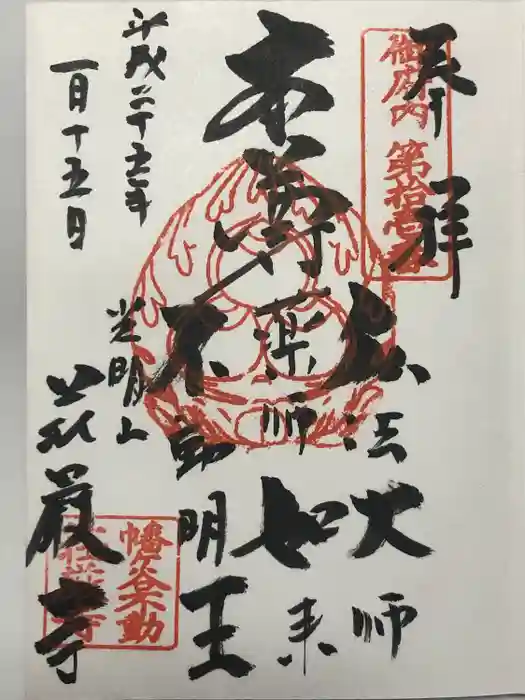 奉拝
御府内 第拾壱番
弘法大師
本尊
薬師如来
不動明王
平成二十五年
一月十五日
光明山
荘厳寺
幡ヶ谷不動
荘厳寺